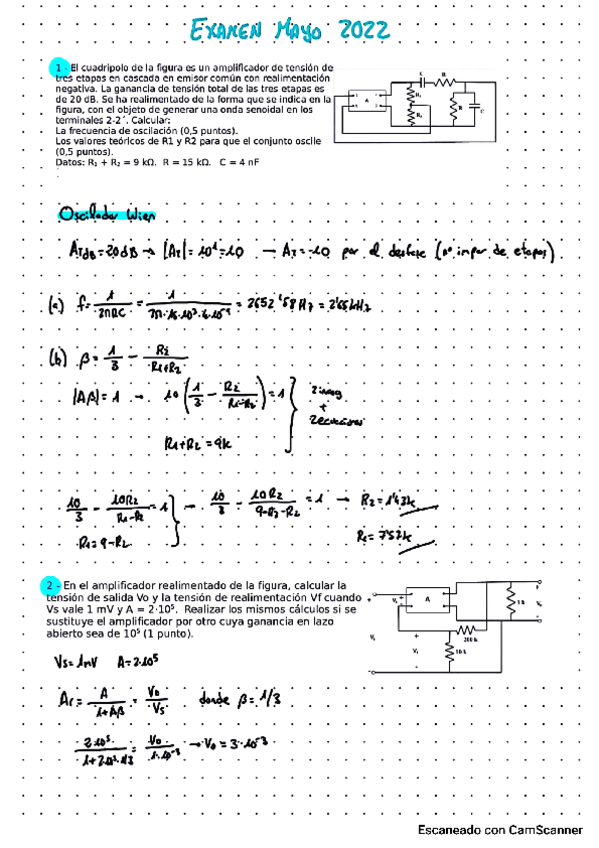 EXAMEN MAYO 2022
1.- El cuadripolo de la figura es un amplificador de tensión de
tres etapas en cascada en emisor común con realimentación
negativa. La ganancia de tensión total de las tres etapas es
de 20 dB. Se ha realimentado de la forma que se indica en la
figura, con el objeto de generar una onda senoidal en los
terminales 2-2´. Calcular:
La frecuencia de oscilación (0,5 puntos).
Los valores teóricos de R1 y R2 para que el conjunto oscile
(0,5 puntos).
Datos: R₁ + R₂ = 9 kΩ. R = 15 kΩ. C = 4 nF
A
C
R
R₁
R₂
R
C
Oscilador Wien
ATdB = 20dB → |AT| = 10¹ = 10 → AT = -10 por el desfase (nº impar de etapas)
(a) f = 1/2πRC = 1/2π·15·10³·4·10⁻⁹ = 2652'58 Hz = 2'65kHz
(b) β = 1/3 - R2/R1+R2
|Aβ| = 1 → 10 (1/3 - R2/R1+R2) = 1
R1+R2 = 9k
2 incog
+
2 ecuaciones
10/3 - 10R2/R1-R2 = 1 → 10/3 - 10R2/9-R2-R2 = 1 → R2 = 1'43k
R1 = 9-R2
R1 = 7'57k
2.- En el amplificador realimentado de la figura, calcular la
tensión de salida Vo y la tensión de realimentación Vf cuando
Vs vale 1 mV y A = 2·10⁵. Realizar los mismos cálculos si se
sustituye el amplificador por otro cuya ganancia en lazo
abierto sea de 10⁵ (1 punto).
A
Vs = 1mV A = 2·10⁵
Af = A/1+Aβ = Vo/Vs donde β = 1/3
2·10⁵/1+2·10⁵·1/3 = Vo/1·10⁻³ → Vo = 3·10⁻³
Escaneado con CamScanner